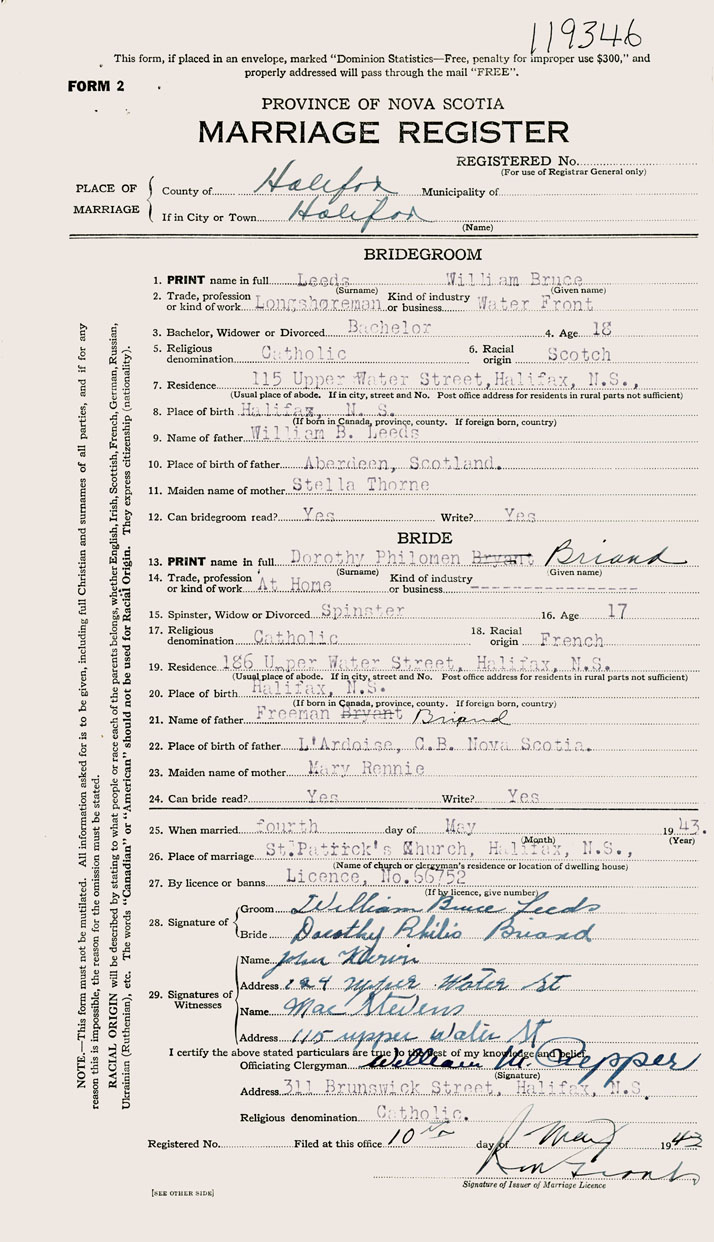 119346
This form, if placed in an envelope, marked "Dominion Statistics—Free, penalty for improper use $300," and
properly addressed will pass through the mail "FREE".
FORM 2
PROVINCE OF NOVA SCOTIA
MARRIAGE REGISTER
REGISTERED No.
(For use of Registrar General only)
PLACE OF MARRIAGE
County of Halifax Municipality of
If in City or Town Halifax
(Name)
BRIDEGROOM
1. PRINT name in full Leeds William Bruce
(Surname) (Given name)
2. Trade, profession or kind of work Longshoreman Kind of industry or business Water Front
3. Bachelor, Widower or Divorced Bachelor 4. Age 18
5. Religious denomination Catholic 6. Racial origin Scotch
7. Residence 115 Upper Water Street, Halifax, N.S.,
(Usual place of abode. If in city, street and No. Post office address for residents in rural parts not sufficient)
8. Place of birth Halifax, N. S.
(If born in Canada, province, county. If foreign born, country)
9. Name of father William B. Leeds
10. Place of birth of father Aberdeen, Scotland.
11. Maiden name of mother Stella Thorne
12. Can bridegroom read? Yes Write? Yes
BRIDE
13. PRINT name in full Dorothy Philomen Bryant Briand
(Surname) (Given name)
14. Trade, profession or kind of work At Home Kind of industry or business ----------------
15. Spinster, Widow or Divorced Spinster 16. Age 17
17. Religious denomination Catholic 18. Racial origin French
19. Residence 186 Upper Water Street, Halifax, N.S.
(Usual place of abode. If in city, street and No. Post office address for residents in rural parts not sufficient)
20. Place of birth Halifax, N.S.
(If born in Canada, province, county. If foreign born, country)
21. Name of father Freeman Bryant Briand
22. Place of birth of father L'Ardoise, C.B. Nova Scotia.
23. Maiden name of mother Mary Rennie
24. Can bride read? Yes Write? Yes
25. When married fourth day of May 1943.
(Month) (Year)
26. Place of marriage St. Patrick's Church, Halifax, N.S.,
(Name of church or clergyman's residence or location of dwelling house)
27. By licence or banns Licence, No. 66752
(If by licence, give number)
28. Signature of
Groom William Bruce Leeds
Bride Dorothy Philis Briand
29. Signatures of Witnesses
Name John
Address 124 upper Water St
Name Mae Stevens
Address 115 upper water St
I certify the above stated particulars are true to the best of my knowledge and belief.
Officiating Clergyman William
(Signature)
Address 311 Brunswick Street, Halifax, N.S.
Religious denomination Catholic.
Registered No. Filed at this office 10th day of May 1943
Signature of Issuer of Marriage Licence
[SEE OTHER SIDE]
NOTE.—This form must not be mutilated. All information asked for is to be given, including full Christian and surnames of all parties, and if for any
reason this is impossible, the reason for the omission must be stated.
RACIAL ORIGIN will be described by stating to what people or race each of the parents belongs, whether English, Irish, Scottish, French, German, Russian,
Ukrainian (Ruthenian), etc. The words "Canadian" or "American" should not be used for Racial Origin. They express citizenship (nationality).